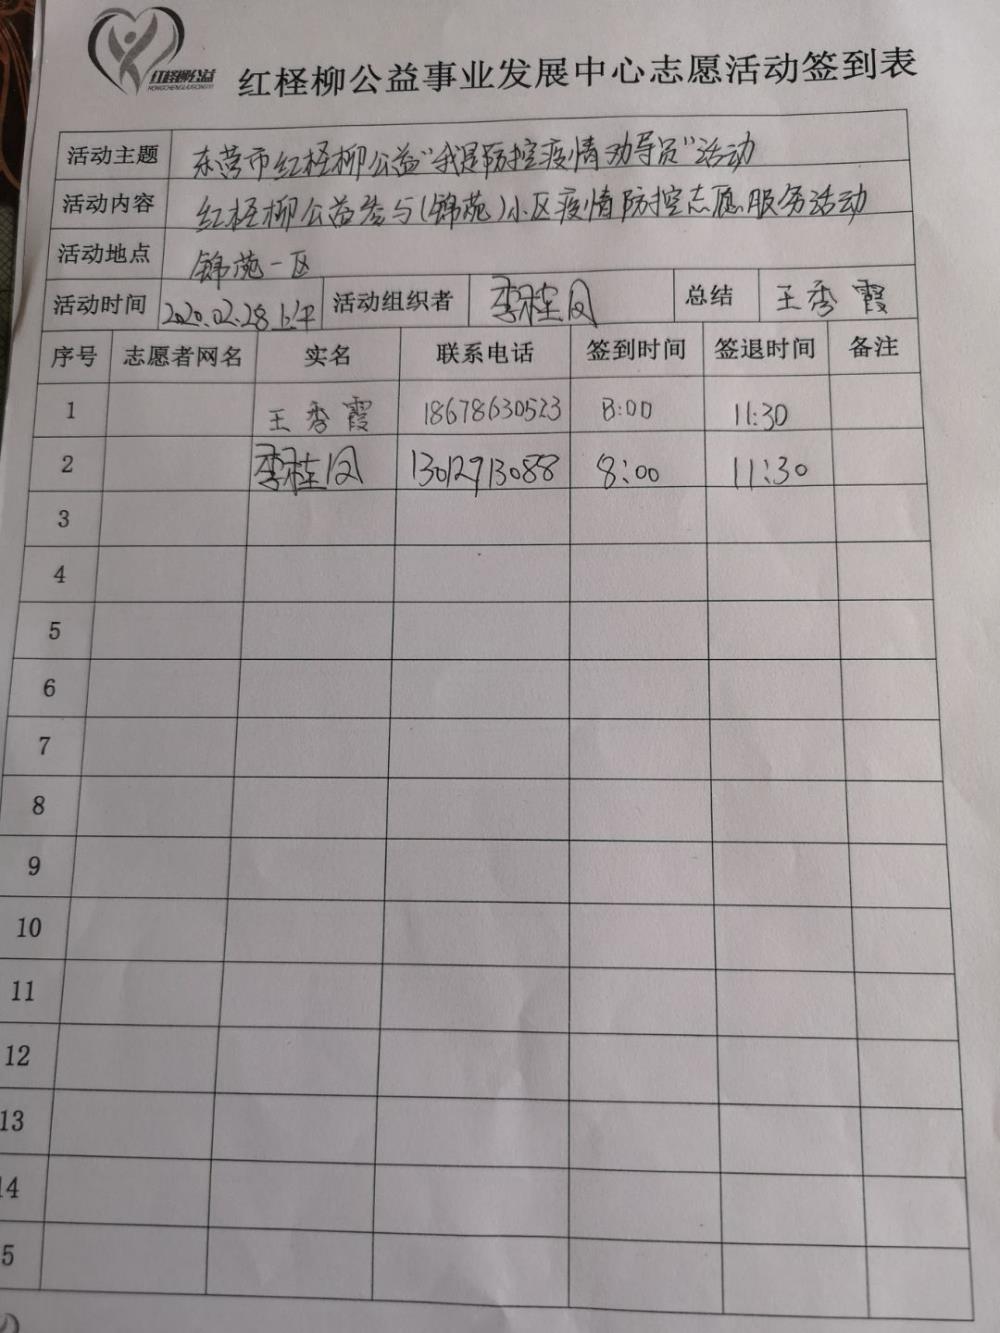 红柽柳公益
红柽柳公益事业发展中心志愿活动签到表
活动主题 东营市红柽柳公益“我是防控疫情劝导员”活动
活动内容 红柽柳公益参与(锦苑)小区疫情防控志愿服务活动
活动地点 锦苑一区
活动时间 2020.02.28上午 活动组织者 李桂凤 总结 王秀霞
序号 志愿者网名 实名 联系电话 签到时间 签退时间 备注
1 王秀霞 18678630523 8:00 11:30
2 李桂凤 13012713088 8:00 11:30
3
4
5
6
7
8
9
10
11
12
13
14
5